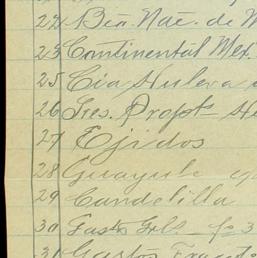 22 Bco. Nac. de M
23 Continental Mex.
25 Cia Nueva
26 Gres. Propt
27 Ejidos
28 Guayule
29 Candelilla
30 Gasts Grls
31 Gastos